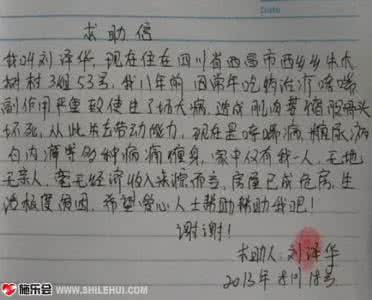 求助信
Date
我叫刘泽华，现在住在四川省西昌市西乡乡牛木
树村3组53号，我八年前因常年吃药治疗哮喘
副作用严重致使生了场大病，造成肌肉萎缩股骨头
坏死，从此失去劳动能力，现在是哮喘病，糖尿病
白内障等多种病痛缠身，家中仅有我一人，无地
无亲人，毫无经济收入来源而言，房屋已成危房，生
活极度困困，希望爱心人士帮助帮助我吧！
谢谢！
求助人：刘泽华
2013年8月18号
施乐会
WWW.SHILEHUI.COM